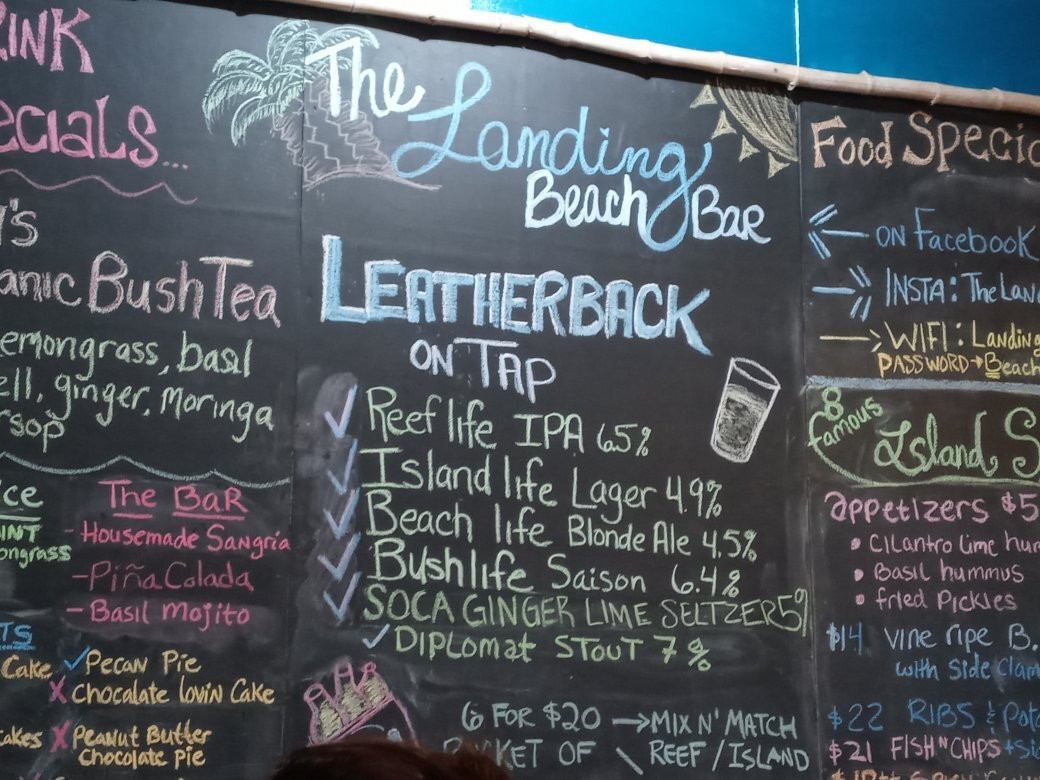 The
Landing
Beach Bar
LEATHERBACK
ON TAP
Reef life IPA 6.5%
Island life Lager 4.9%
Beach life Blonde Ale 4.5%
Bushlife Saison 6.4%
SOCA GINGER LIME SELTZER 5%
DIPLOMAT STOUT 7%
6 FOR $20 → MIX N' MATCH
OF REEF / ISLAND
Bush Tea
basil
ginger, moringa
The BaR
- Housemade Sangria
- Piña Colada
- Basil Mojito
Cake ✓ Pecan Pie
X Chocolate lovin Cake
X Peanut Butter
Chocolate Pie
Food
ON Facebook
INSTA: The
WIFI: Landing
PASSWORD → Beach
8
famous
Island
appetizers $5
• Cilantro lime
• Basil hummus
• fried Pickles
$14 vine ripe B.
with Side
$22 RIBS &
$21 FISH N CHIPS